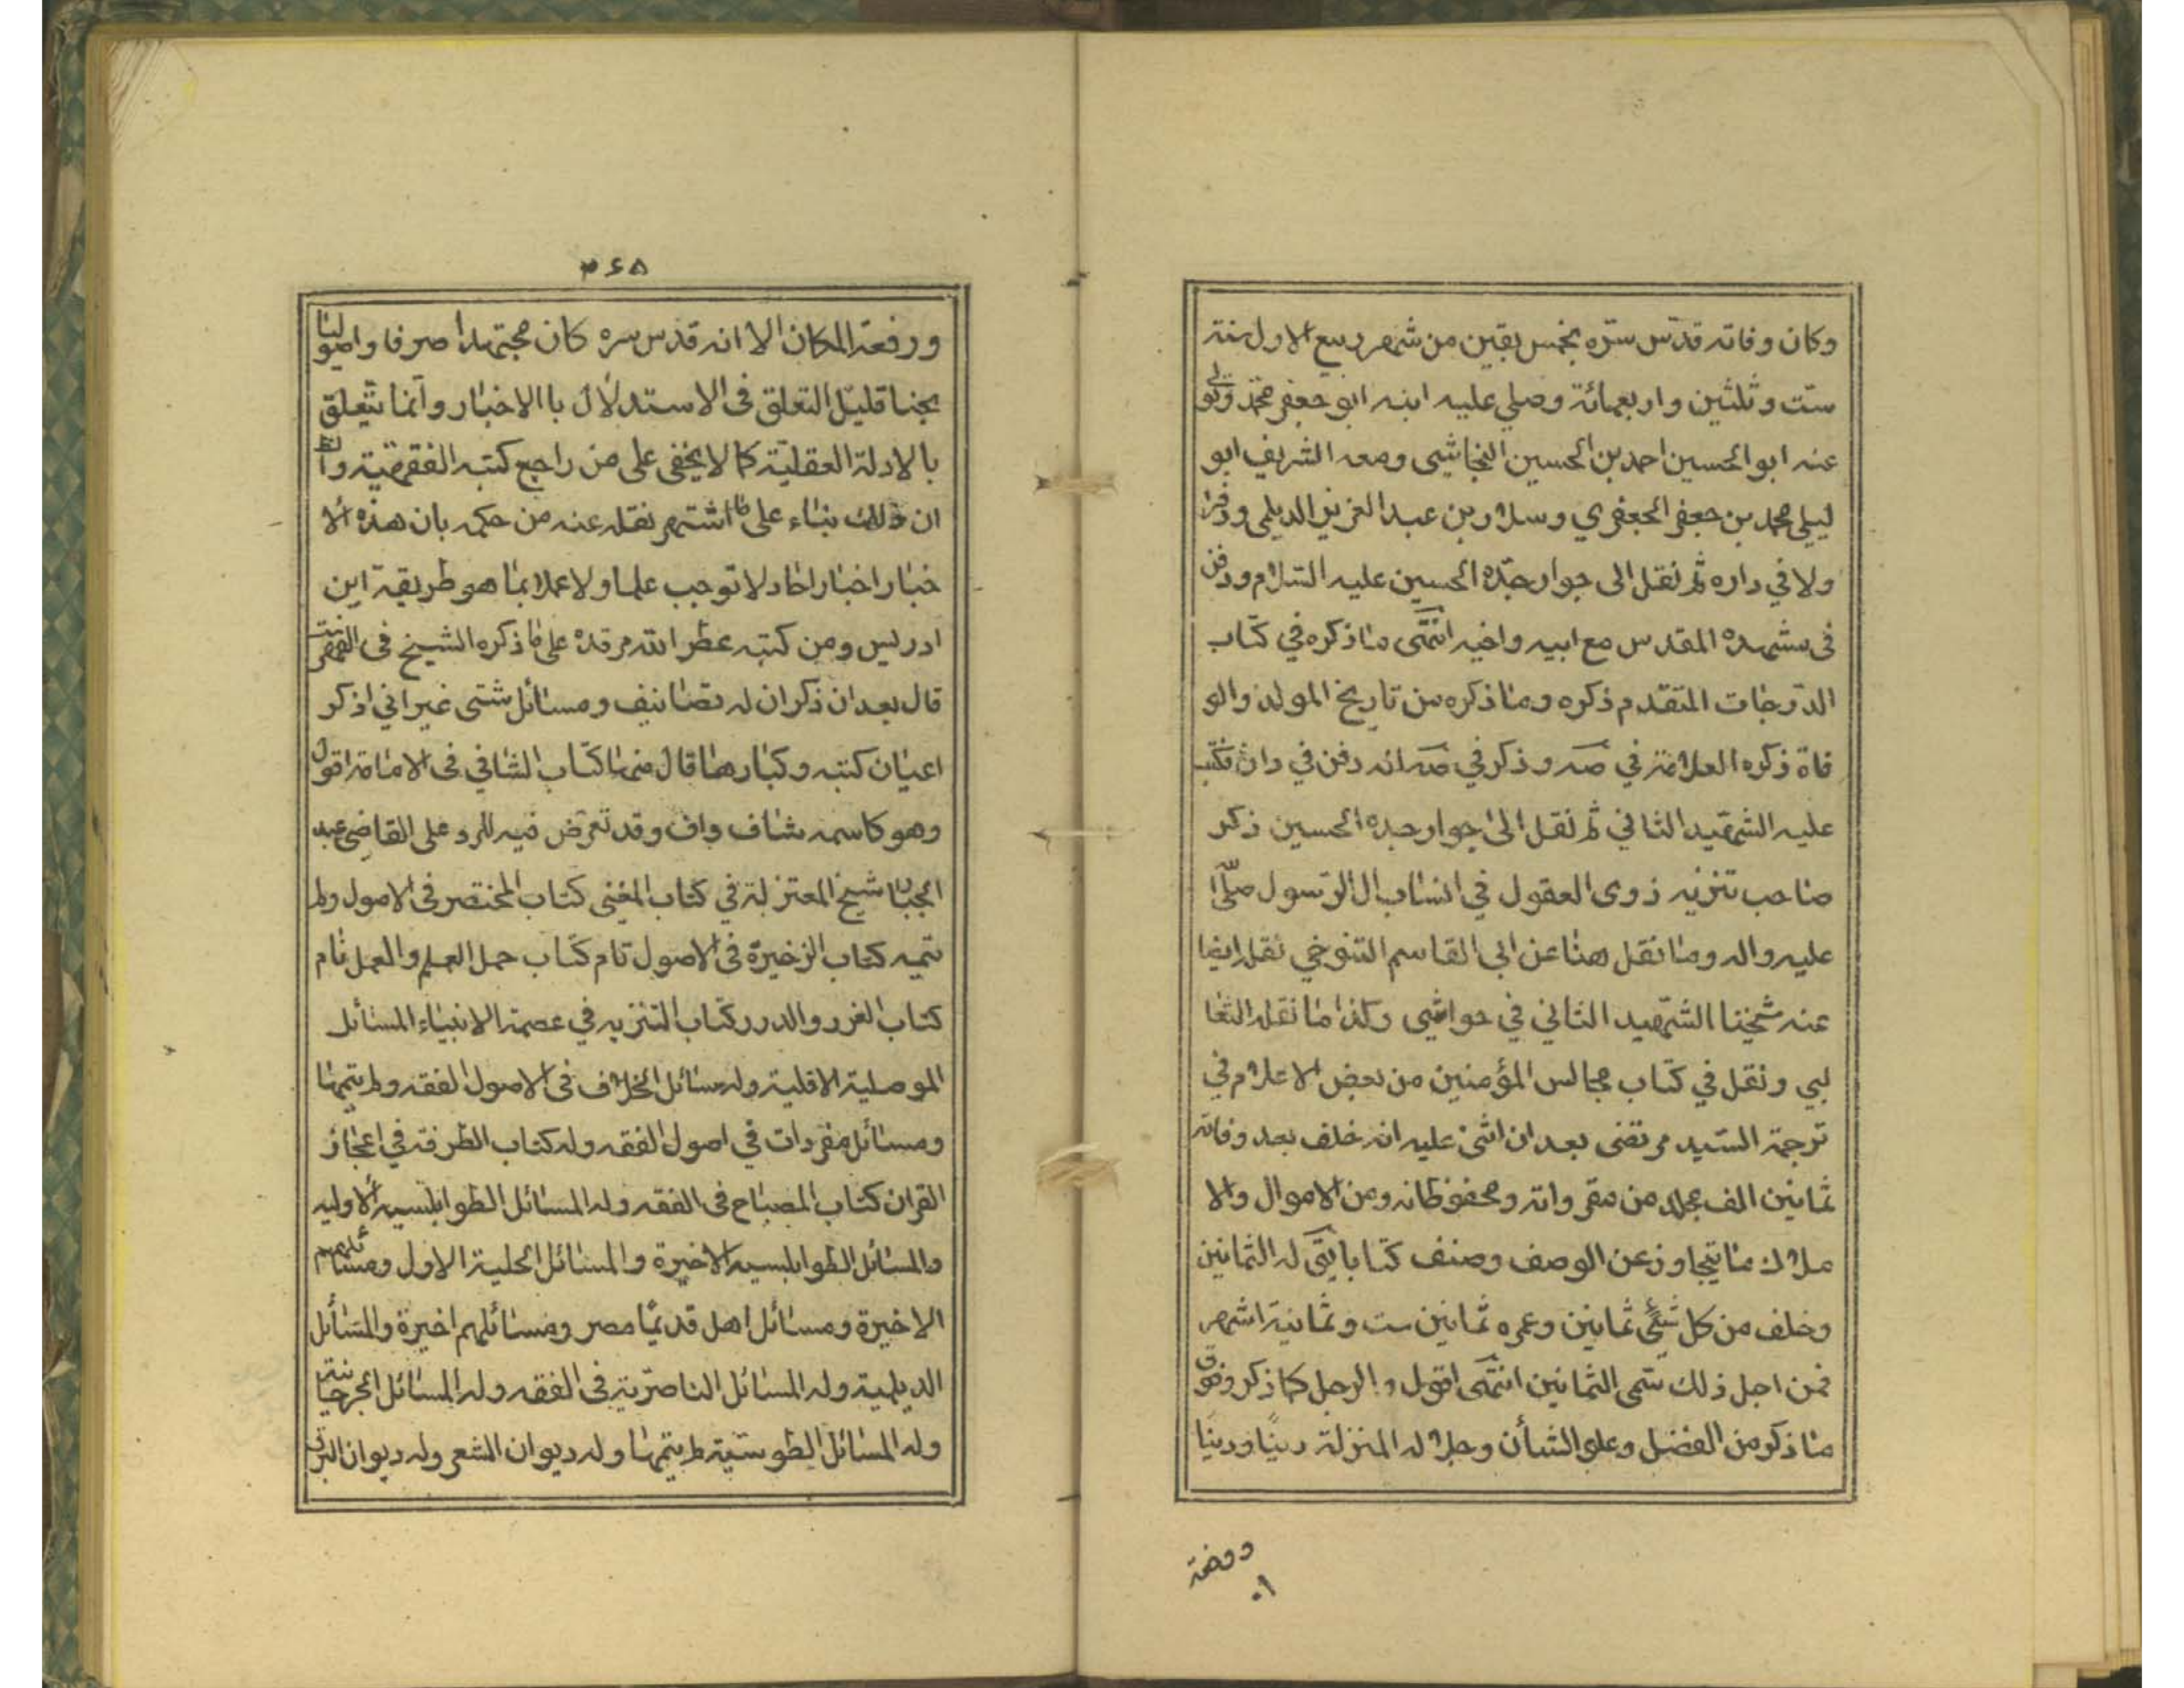 وكان وفاته قدّس سرّه بخمس بقين من شهر ربيع الاول سنة
ستّ وثلثين واربعمائة وصلي عليه ابنه ابو جعفر محمّد وتولى
عنه ابو الحسين احمد بن الحسين النجاشي ومعه الشريف ابو
ليلي محمد بن جعفر الجعفري وسلار بن عبد العزيز الديلمي ودفن
ولا في داره ثم نقل الى جوار جدّه الحسين عليه السّلام ودفن
في مشهده المقدس مع ابيه واخيه انتهى ما ذكره في كتاب
الدّرجات المتقدم ذكره وما ذكره من تاريخ المولد والو
فاة ذكره العلامة في صه وذكر في صه انه دفن في داره فكتب
عليه الشهيد الثاني ثم نقل الى جوار جده الحسين ذكر
صاحب تنزيه ذوى العقول في انساب ال الرّسول صلّى الله
عليه واله وما نقل هنا عن ابي القاسم التنوخي نقل ايضا
عنه شيخنا الشّهيد الثاني في حواشي وكذا ما نقله الثعا
لبي ونقل في كتاب مجالس المؤمنين من بعض الاعلام في
ترجمة السّيد مرتضى بعد ان اثنى عليه انه خلف بعد وفاته
ثمانين الف مجلد من مقرواته ومحفوظاته ومن الاموال والا
ملاك ما يتجاوز عن الوصف وصنف كتابا يقال له الثمانين
وخلف من كل شيئ ثمانين وعمره ثمانين ست وثمانية اشهر
فمن اجل ذلك سمّى الثمانين انتهى اقول والرجل كما ذكر وفوق
ما ذكر من الفضل وعلو الشأن وجلاله المنزلة دينًا ودينا
ورفعة
٣٦٥
ورفعة المكان الا انه قدس سره كان مجتهدا صرفا واصوليا
بحتا قليل التعلق في الاستدلال باالاخبار وانما يتعلق
بالادلة العقلية كما لا يخفى على من راجع كتبه الفقهية
ان ذلك بناء على ما اشتهر نقله عنه من حكمه بان هذه الا
خبار اخبار احاد لا توجب علما ولا عملا بما هو طريقة ابن
ادريس ومن كتبه عطر الله مرقده على ما ذكره الشيخ في الفهرست
قال بعد ان ذكر ان له تصانيف ومسائل شتى غير اني اذكر
اعيان كتبه وكبارها قال منها كتاب الشافي في الامامة اقول
وهو كاسمه شاف واف وقد تعرّض فيه للرد على القاضي عبد
الجبار شيخ المعتزلة في كتاب المغنى كتاب المختصر في الاصول ولم
يتمه كتاب الزخيرة في الاصول تام كتاب جمل العلم والعمل تام
كتاب الغرر والدرر كتاب التنزيه في عصمة الانبياء المسائل
الموصلية الاقلية وله مسائل الخلاف في الاصول الفقه ولم يتمها
ومسائل مفردات في اصول الفقه وله كتاب الطرفة في اعجاز
القران كتاب المصباح في الفقه وله المسائل الطوابلسية الاوليه
والمسائل الطوابلسية الاخيرة والمسائل الحلية الاول ومسائلهم
الاخيرة ومسائل اهل قديمًا مصر ومسائلهم اخيرة والمسائل
الديلمية وله المسائل الناصرّية في الفقه وله المسائل الجرجانية
وله المسائل الطوسّية لم يتمها وله ديوان الشعر وله ديوان البرق